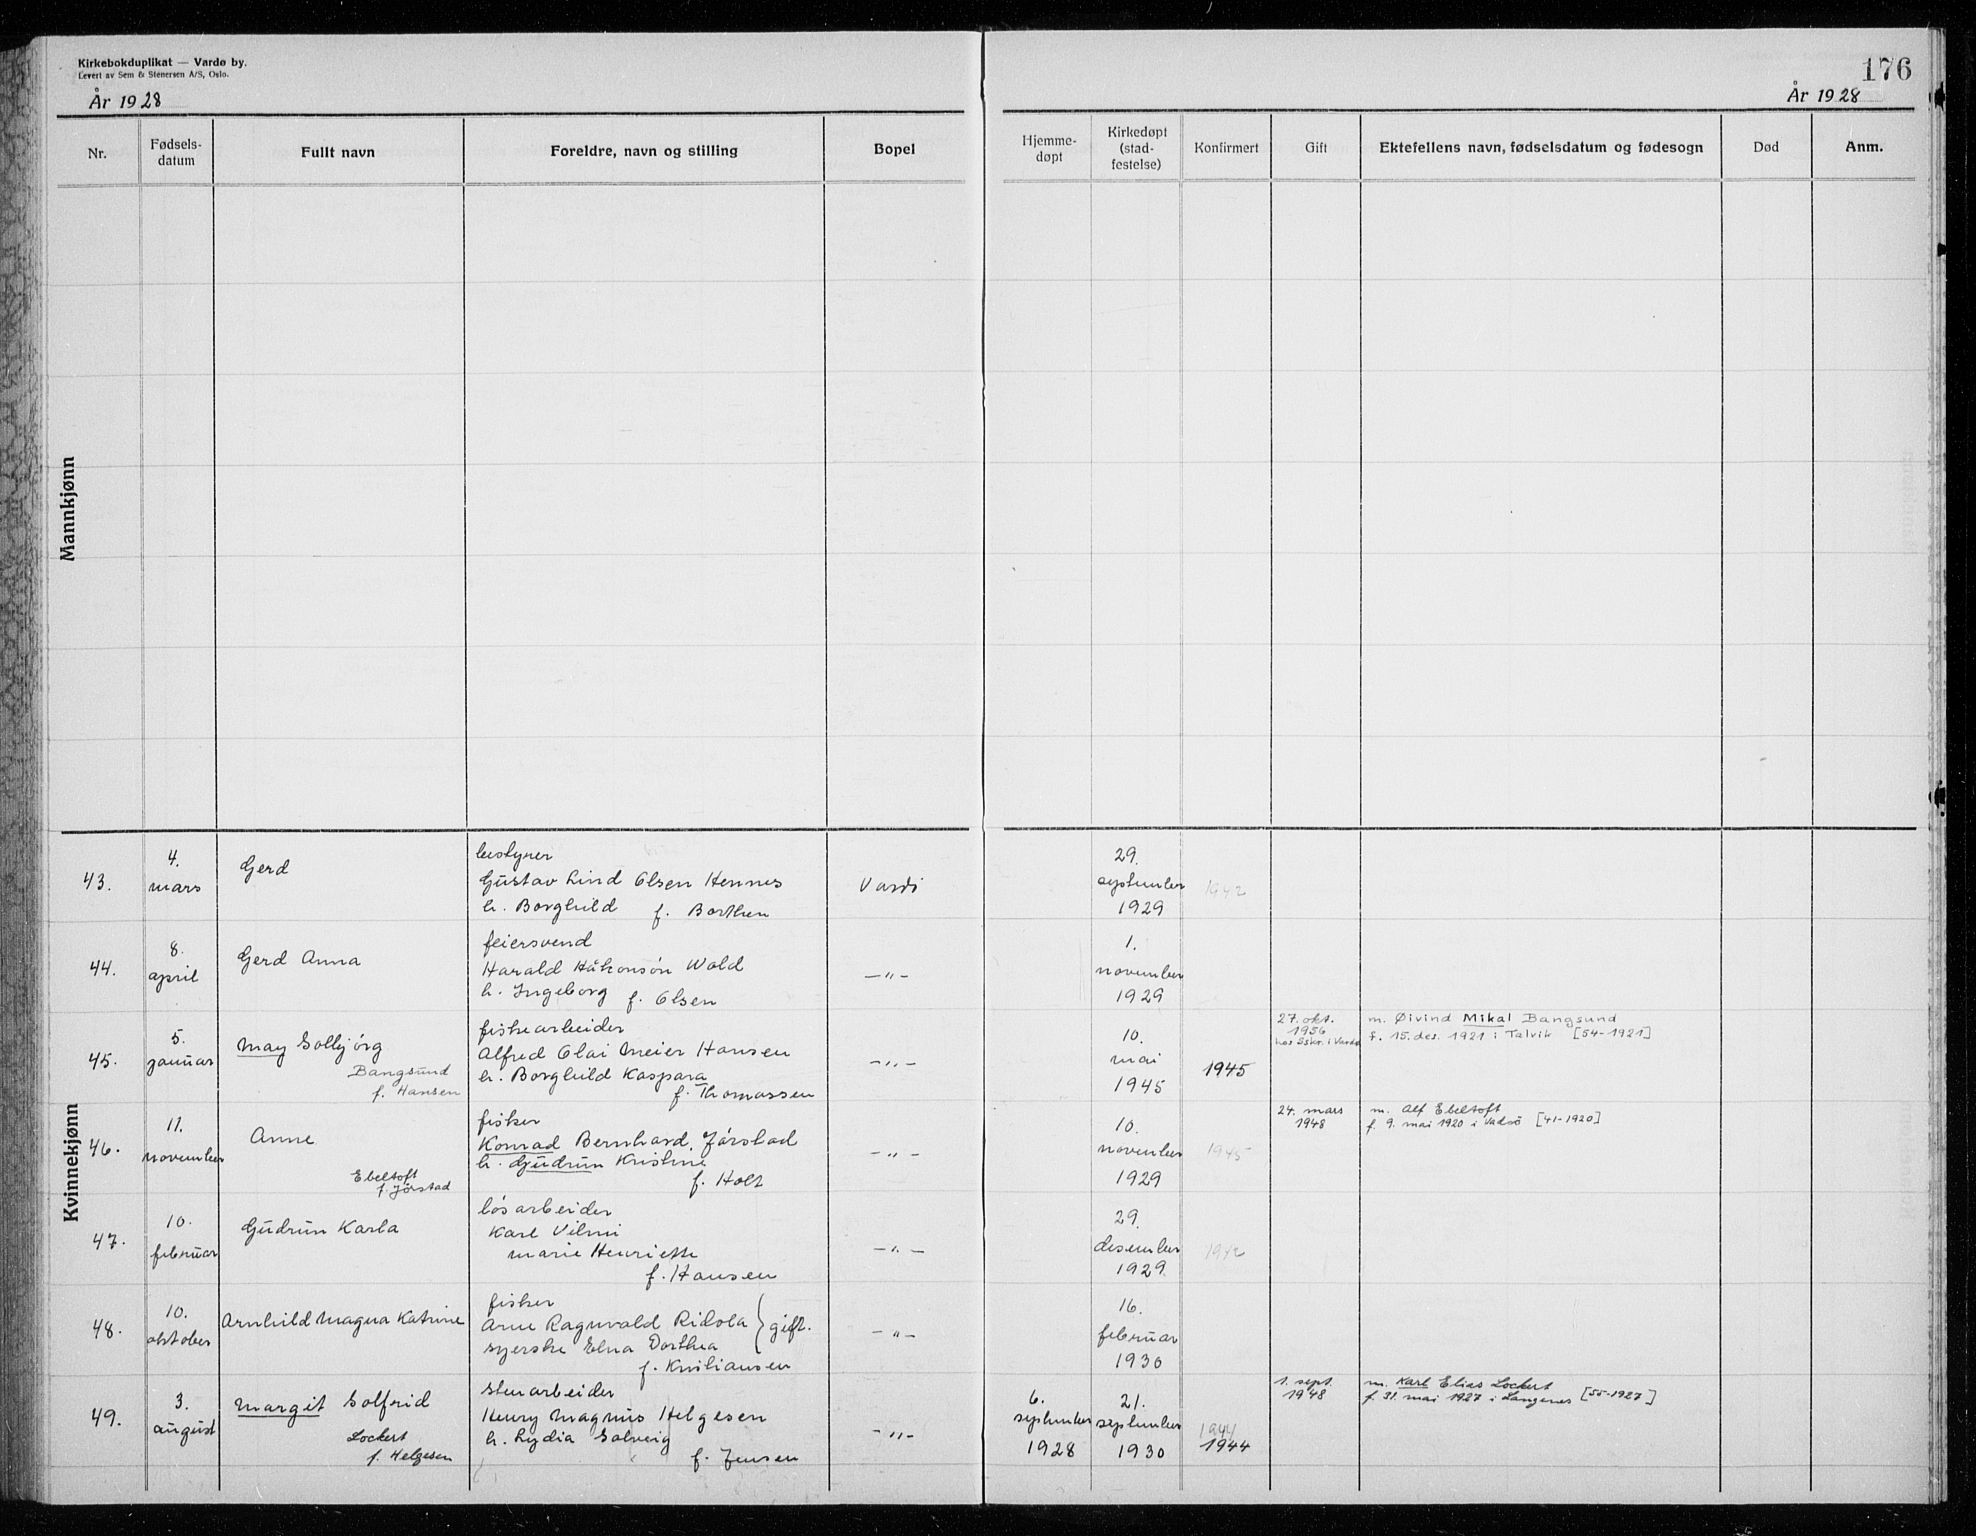 Kirkebokduplikat — Vardø by.
Levert av Sem & Stenersen A/S, Oslo.
År 1928
176
År 1928
Nr.
Fødsels-
datum
Fullt navn
Foreldre, navn og stilling
Bopel
Hjemme-
døpt
Kirkedøpt
(stad-
festelse)
Konfirmert
Gift
Ektefellens navn, fødselsdatum og fødesogn
Død
Anm.
Mannkjønn
Kvinnekjønn
43.
4.
mars
Gerd
bestyrer
Gustav Lind Olsen Hennes
h. Borghild f. Borthen
Vardö
29.
september
1929
1942
44.
8.
april
Gerd Anna
feiersvend
Harald Håkonsön Wold
h. Ingeborg f. Olsen
— " —
1.
november
1929
45.
5.
januar
May Solbjörg
Bangsund
f. Hansen
fiskearbeider
Alfred Olai Meier Hansen
h. Borghild Kaspara
f. Thomassen
— " —
10.
mai
1945
1945
27. okt.
1956
hos Sskr. i Vardø
m. Øivind Mikal Bangsund
f. 15. des. 1921 i Talvik [54-1921]
46.
11.
november
Anne
Ebeltoft
f. Jörstad
fisker
Konrad Bernhard Jörstad
h. Gudrun Kristine
f. Holt
— " —
10.
november
1929
1945
24. mars
1948
m. Alf Ebeltoft
f. 9. mai 1920 i Vadsö [41-1920]
47.
10.
februar
Gudrun Karla
lösarbeider
Karl Vilmi
Marie Henriette
f. Hansen
— " —
29.
desember
1929
1942
48.
10.
oktober
Arnhild Magna Katrine
fisker
Arne Ragnvald Ridola
syerske Elna Dorthea
} gift.
f. Kristiansen
— " —
16.
februar
1930
49.
3.
august
Margit Solfrid
Lockert
f. Helgesen
stenarbeider
Henry Magnus Helgesen
h. Lydia Solveig
f. Jensen
— " —
6.
september
1928
21.
september
1930
1944
1944
1. sept.
1948
m. Karl Elias Lockert
f. 31. mai 1927 i Langenes [55-1927]